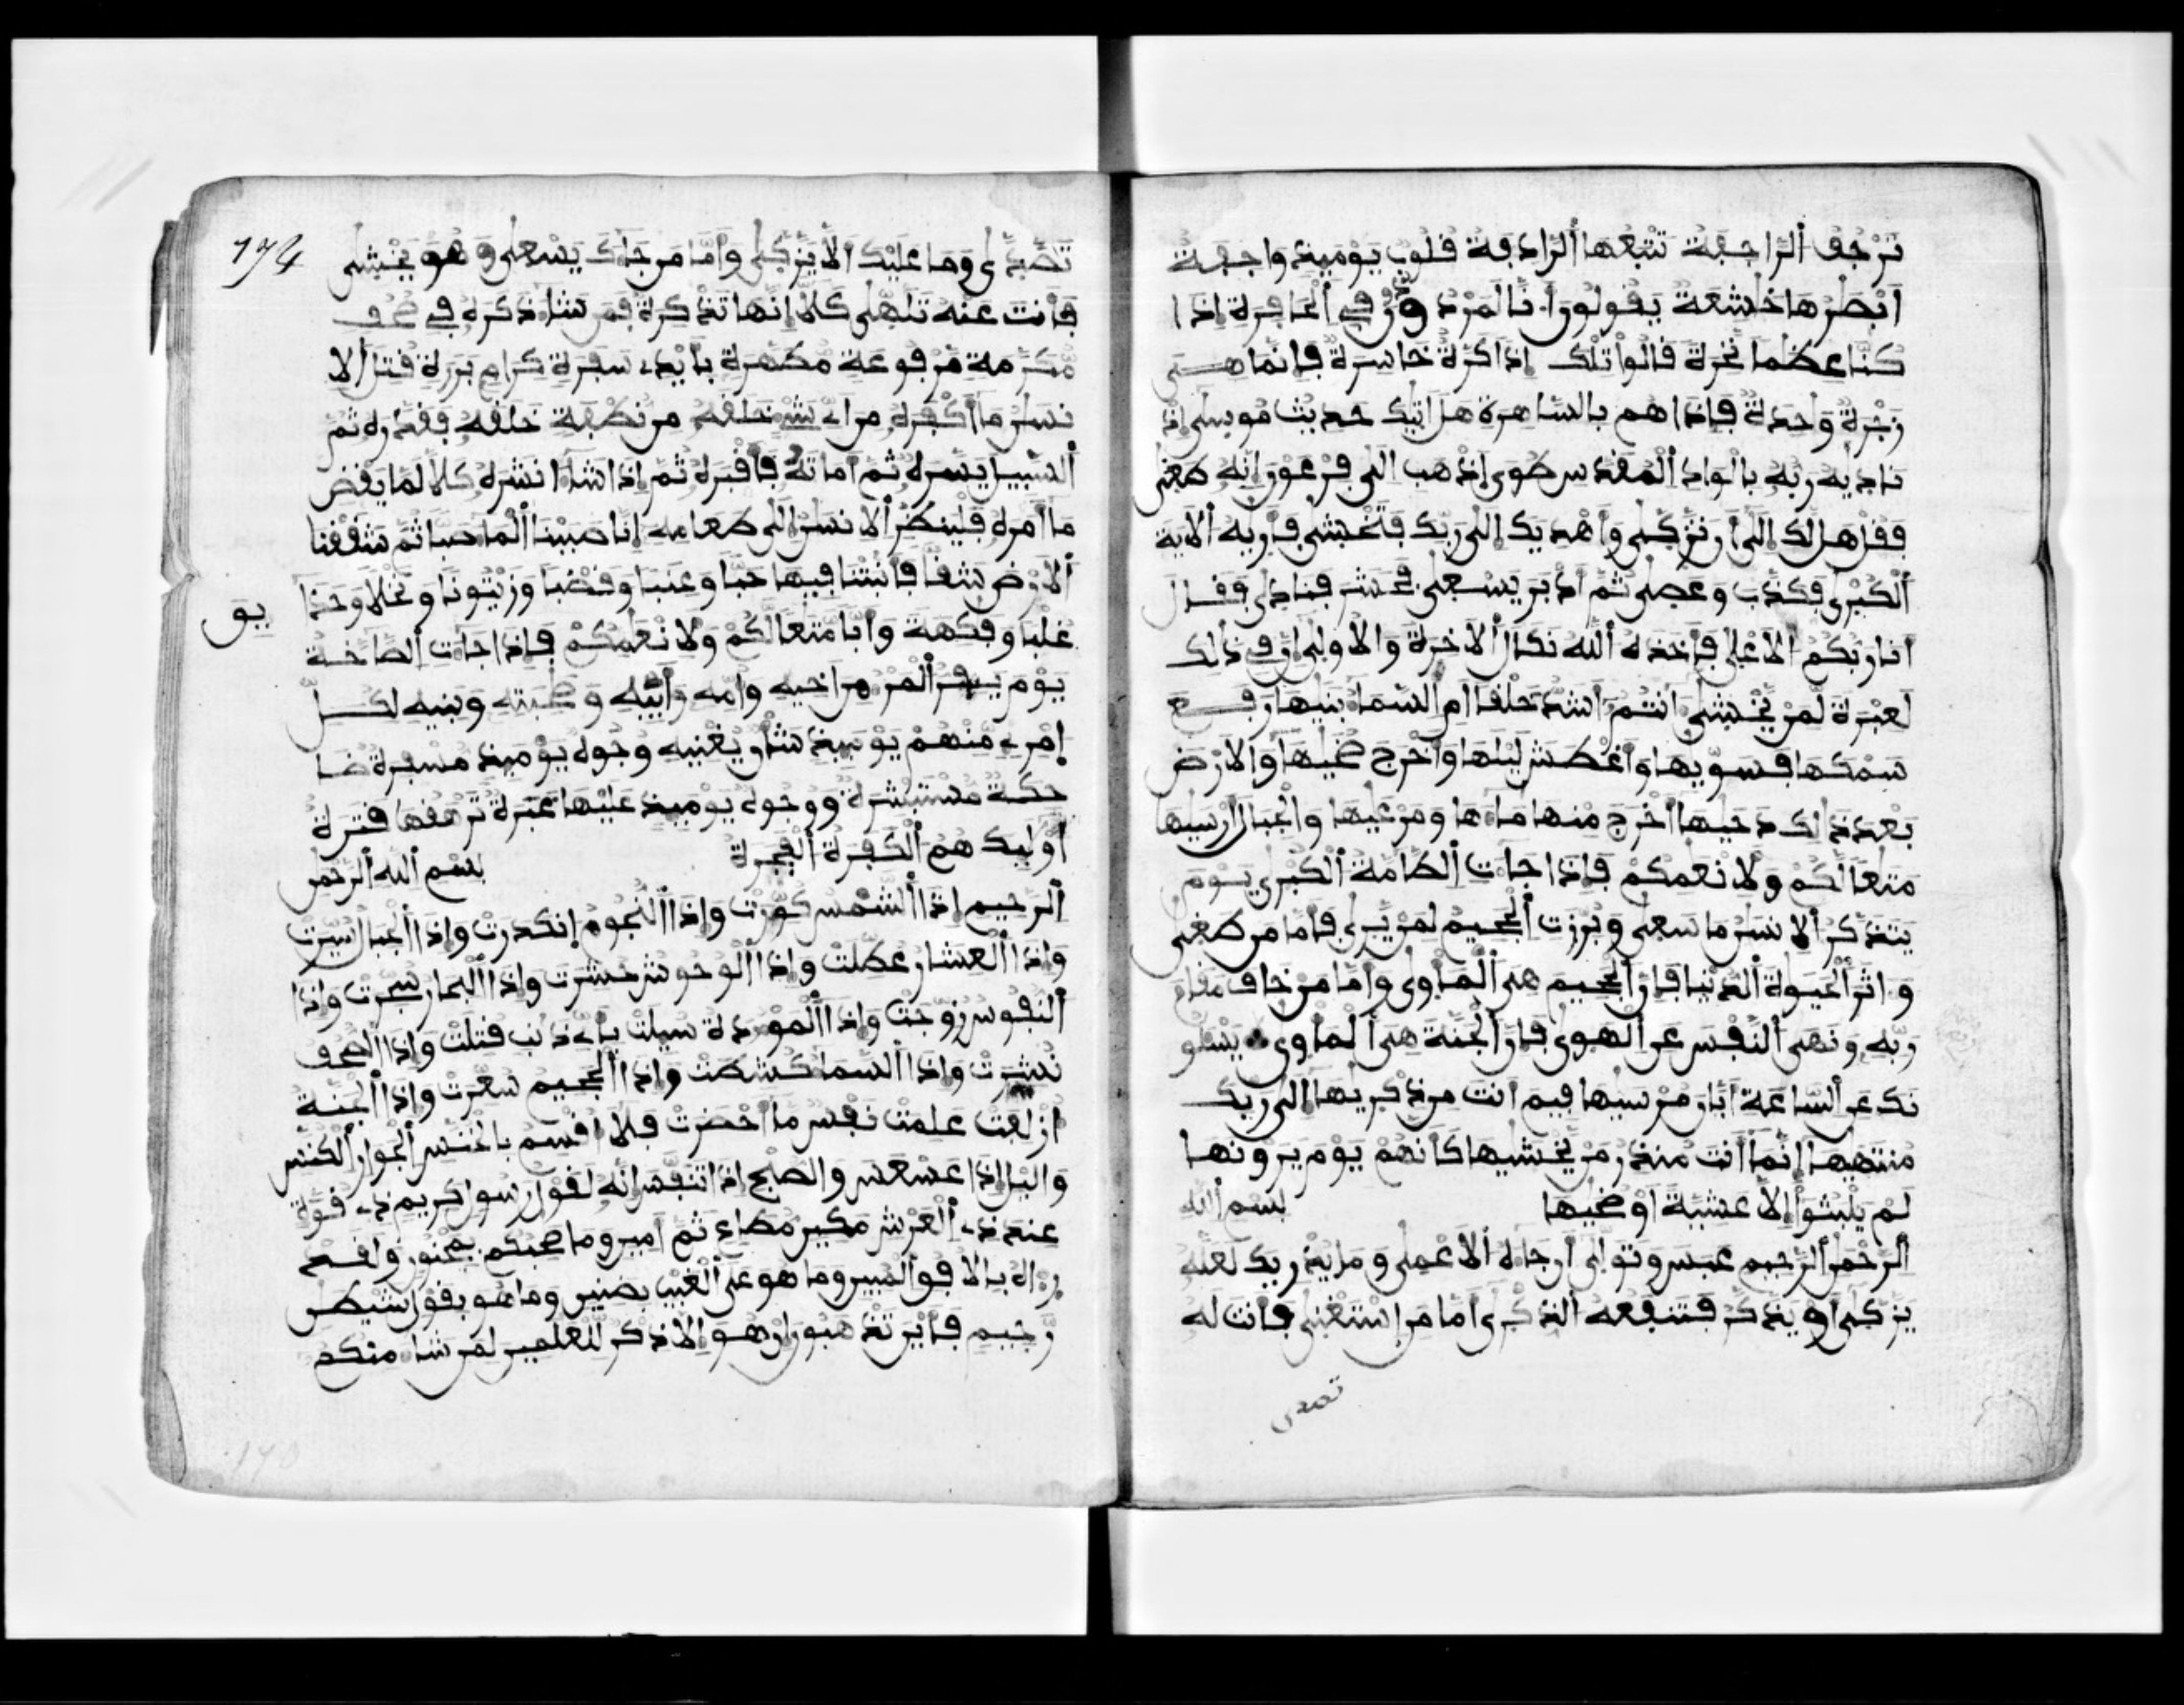 ترجف الراجفة تتبعها الرادفة قلوب يوميذ واجفة
ابصرها خشعة يقولون انا لمردودون في الحافرة اذا
كنا عظما نخرة قالوا تلك اذا كرة خاسرة فانما هي
زجرة واحدة فاذا هم بالساهرة هل اتيك حديث موسى اذ
ناديه ربه بالواد المقدس طوى اذهب الى فرعون انه طغى
فقل هل لك الى ان تزكى واهديك الى ربك فتخشى فاريه الاية
الكبرى فكذب وعصى ثم ادبر يسعى فحشر فنادى فقال
انا ربكم الاعلى فاخذه الله نكال الاخرة والاولى ان في ذلك
لعبرة لمن يخشى انتم اشد خلقا ام السما بنيها رفع
سمكها فسويها واغطش ليلها واخرج ضحيها والارض
بعد ذلك دحيها اخرج منها ماها ومرعيها والجبال ارسيها
متعا لكم ولانعمكم فاذا جات الطامة الكبرى يوم
يتذكر الانسن ما سعى وبرزت الجحيم لمن يرى فاما من طغى
واثر الحيوة الدنيا فان الجحيم هي الماوى واما من خاف مقام
ربه ونهى النفس عن الهوى فان الجنة هي الماوى يسلو
نك عن الساعة ايان مرسيها فيم انت من ذكريها الى ربك
منتهيها انما انت منذر من يخشيها كانهم يوم يرونها
لم يلبثوا الا عشية او ضحيها بسم الله
الرحمن الرحيم عبس وتولى ان جاه الاعمى وما يدريك لعله
يزكى او يذكر فتنفعه الذكرى اما من استغنى فانت له
تصدى
تصدى وما عليك الا يزكى واما من جاك يسعى وهو يخشى
فانت عنه تلهى كلا انها تذكرة فمن شا ذكره في صحف
مكرمة مرفوعة مطهرة بايدي سفرة كرام بررة قتل الا
نسن ما اكفره من اي شي خلقه من نطفة خلقه فقدره ثم
السبيل يسره ثم اماته فاقبره ثم اذا شا انشره كلا لما يقض
ما امره فلينظر الانسن الى طعامه انا صببنا الما صبا ثم شققنا
الارض شقا فانبتنا فيها حبا وعنبا وقضبا وزيتونا ونخلا وحدا
يق
غلبا وفكهة وابا متعا لكم ولانعمكم فاذا جات الصاخة
يوم يفر المر من اخيه وامه وابيه وصحبته وبنيه لكل
امري منهم يوميذ شان يغنيه وجوه يوميذ مسفرة ضا
حكة مستبشرة ووجوه يوميذ عليها غبرة ترهقها قترة
اوليك هم الكفرة الفجرة بسم الله الرحمن
الرحيم اذا الشمس كورت واذا النجوم انكدرت واذا الجبال سيرت
واذا العشار عطلت واذا الوحوش حشرت واذا البحار سجرت واذا
النفوس زوجت واذا الموودة سيلت باي ذنب قتلت واذا الصحف
نشرت واذا السما كشطت واذا الجحيم سعرت واذا الجنة
ازلفت علمت نفس ما احضرت فلا اقسم بالخنس الجوار الكنس
واليل اذا عسعس والصبح اذا تنفس انه لقول رسول كريم ذي قوة
عند ذي العرش مكين مطاع ثم امين وما صحبكم بمجنون ولقد
راه بالافق المبين وما هو على الغيب بضنين وما هو بقول شيطن
رجيم فاين تذهبون ان هو الا ذكر للعلمين لمن شا منكم